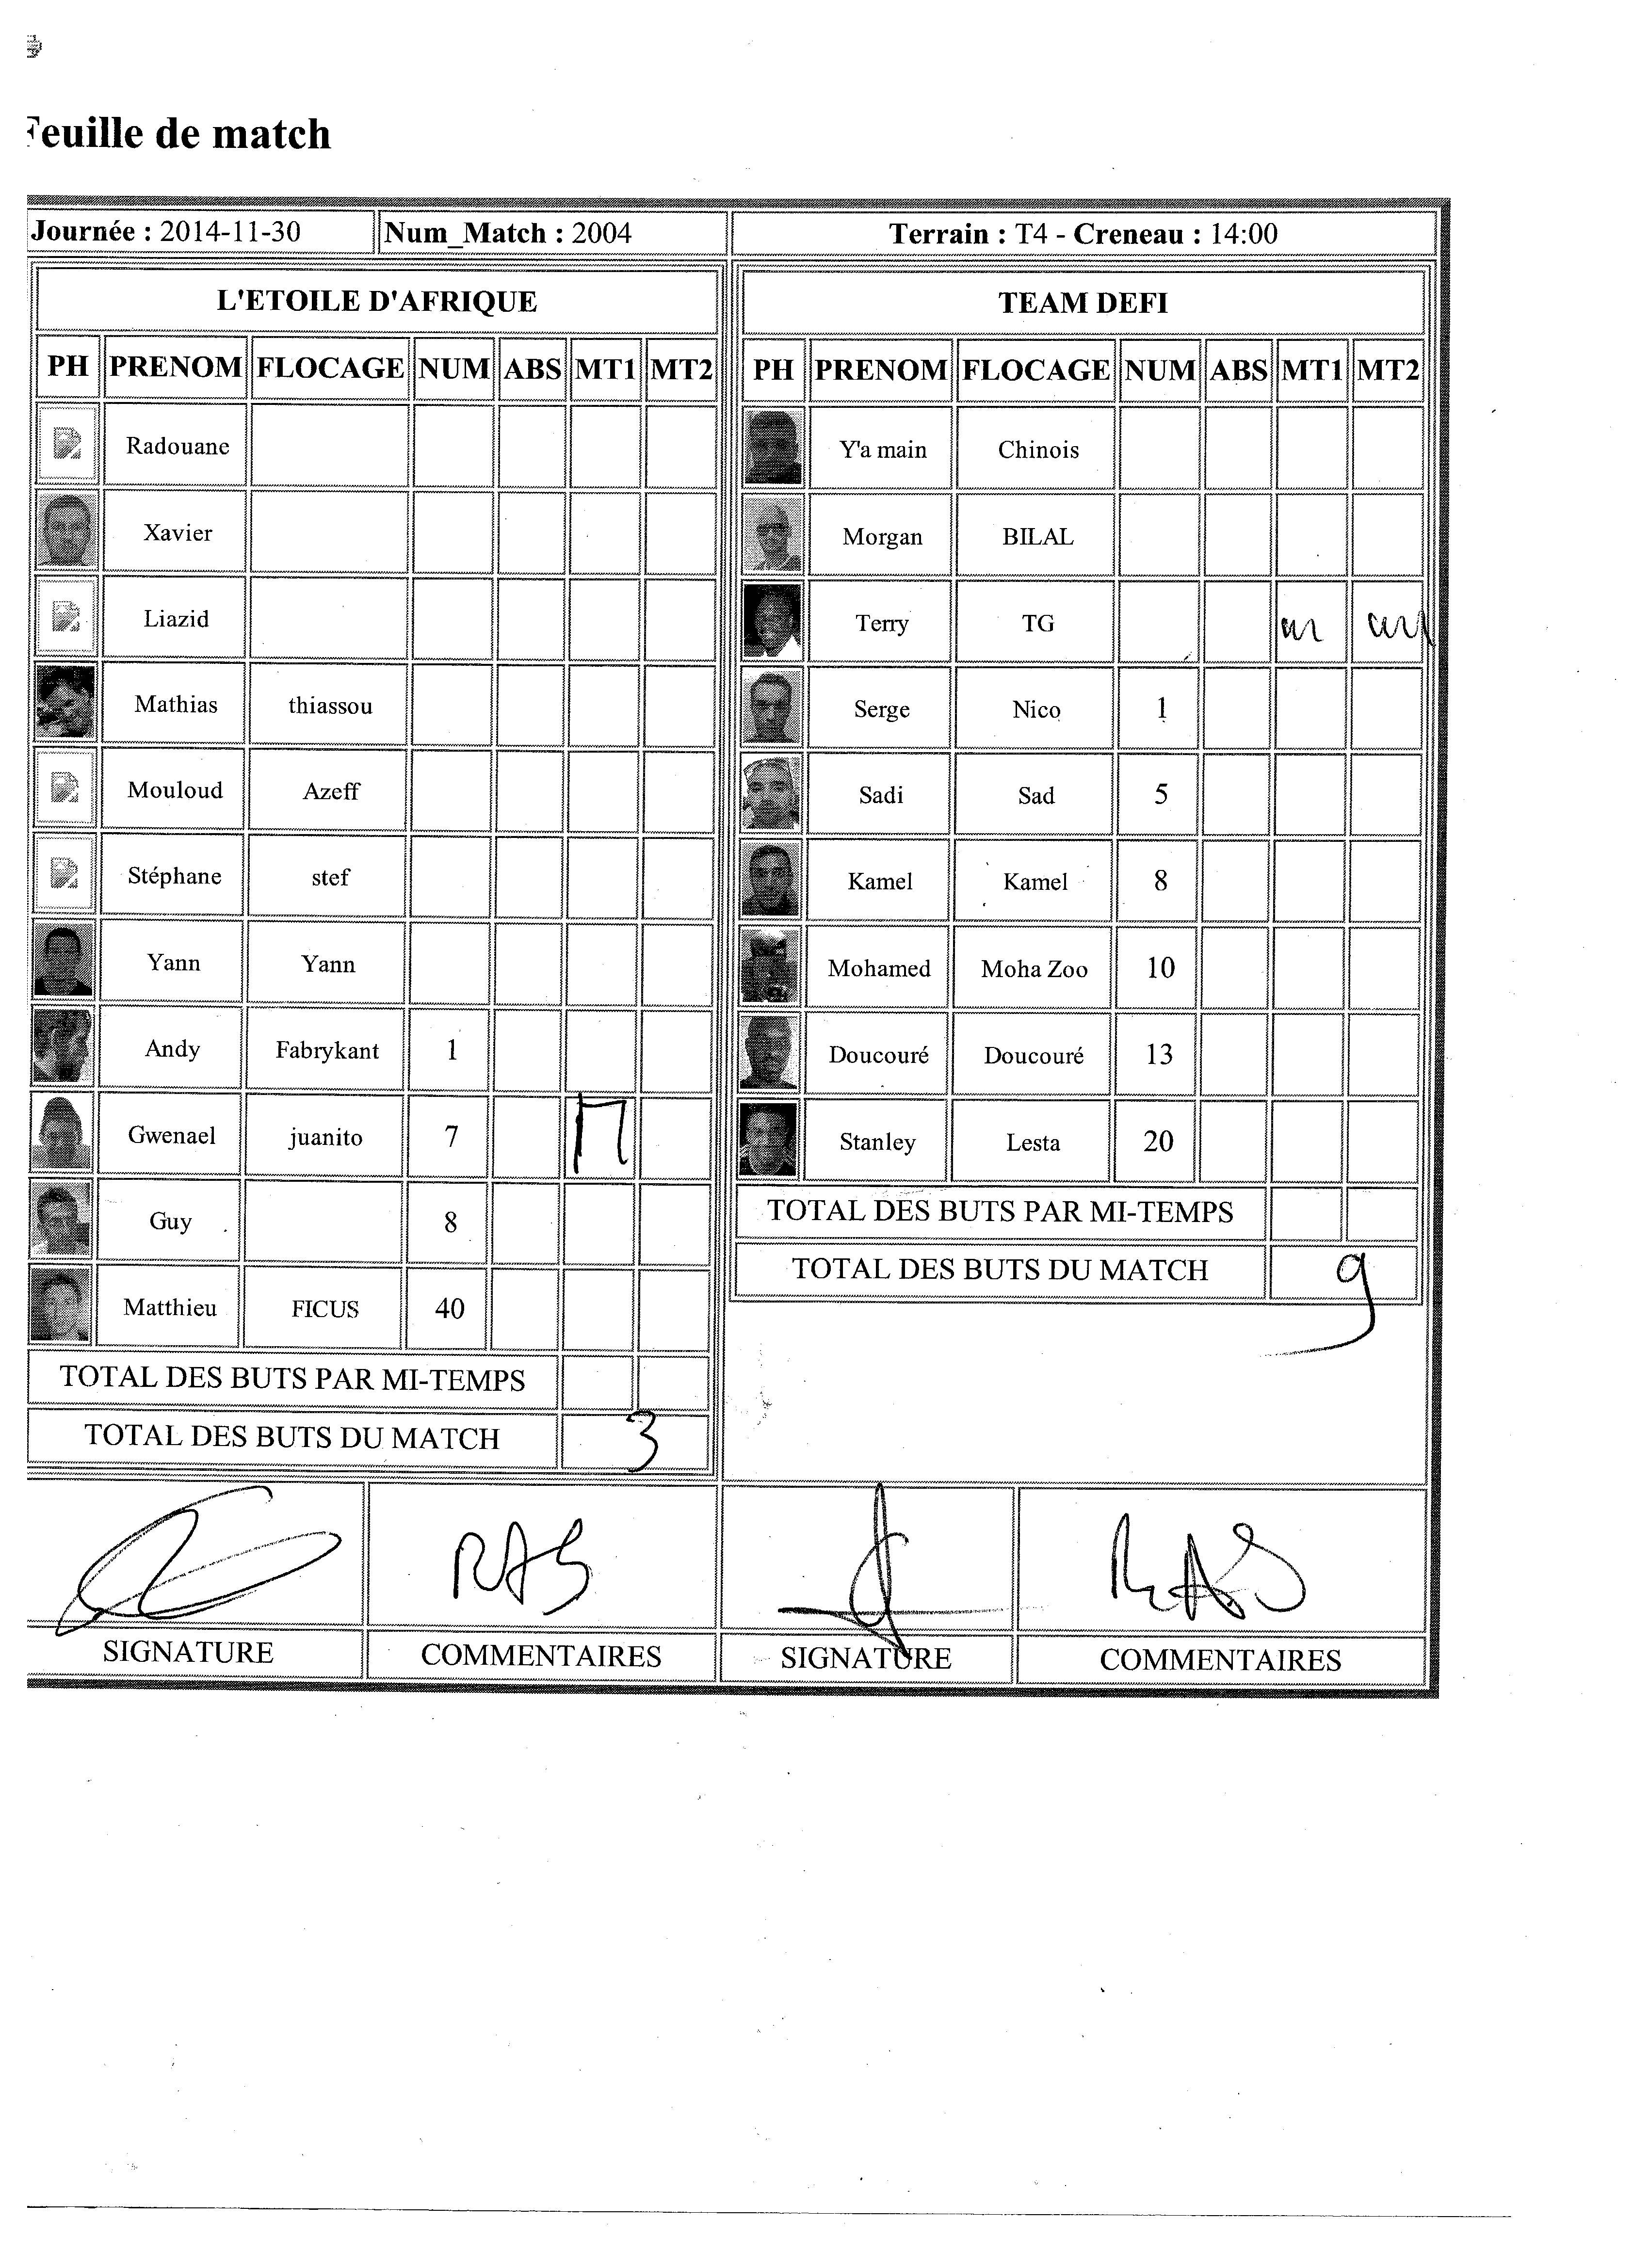 Feuille de match
Journée : 2014-11-30 Num_Match : 2004 Terrain : T4 - Creneau : 14:00
L'ETOILE D'AFRIQUE
PH PRENOM FLOCAGE NUM ABS MT1 MT2
Radouane
Xavier
Liazid
Mathias thiassou
Mouloud Azeff
Stéphane stef
Yann Yann
Andy Fabrykant 1
Gwenael juanito 7
Guy 8
Matthieu FICUS 40
TOTAL DES BUTS PAR MI-TEMPS
TOTAL DES BUTS DU MATCH 3
TEAM DEFI
PH PRENOM FLOCAGE NUM ABS MT1 MT2
Y'a main Chinois
Morgan BILAL
Terry TG
Serge Nico 1
Sadi Sad 5
Kamel Kamel 8
Mohamed Moha Zoo 10
Doucouré Doucouré 13
Stanley Lesta 20
TOTAL DES BUTS PAR MI-TEMPS
TOTAL DES BUTS DU MATCH 9
RAS RAS
SIGNATURE COMMENTAIRES SIGNATURE COMMENTAIRES